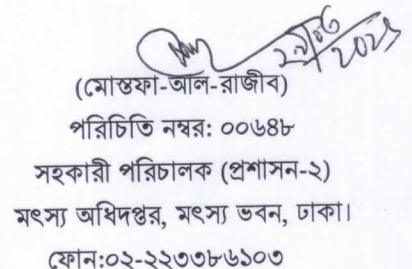 (মোস্তফা-আল-রাজীব)
পরিচিতি নম্বর: ০০৬৪৮
সহকারী পরিচালক (প্রশাসন-২)
মৎস্য অধিদপ্তর, মৎস্য ভবন, ঢাকা।
ফোন:০২-২২৩৩৮৬১০৩